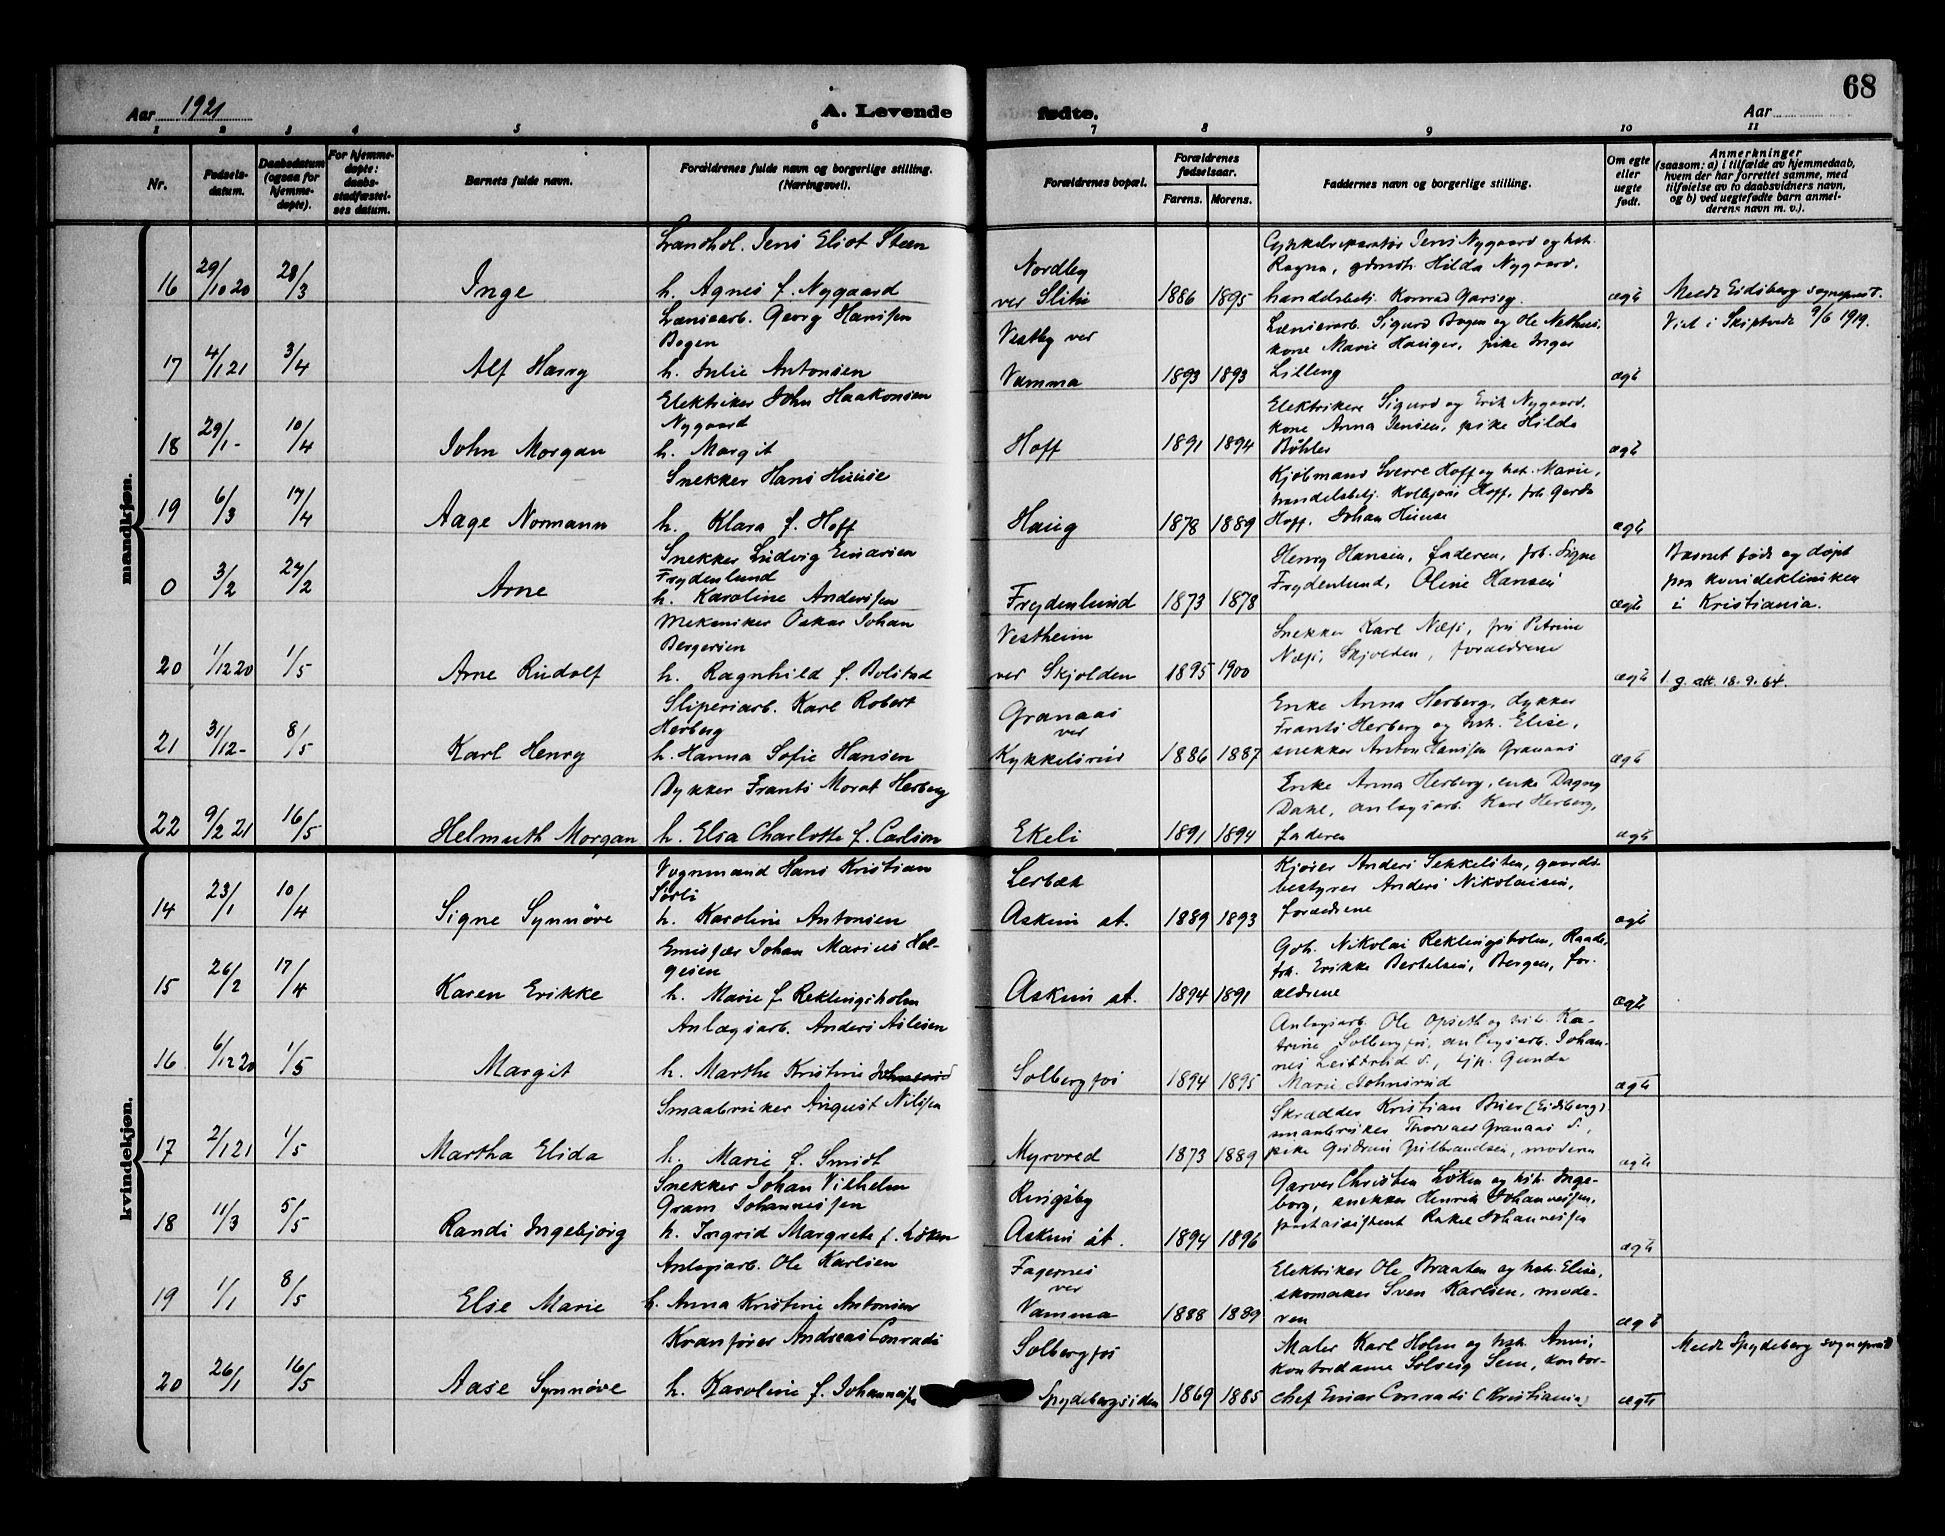 68
Aar 1921 A. Levende fødte. Aar
1 2 3 4 5 6 7 8 9 10 11
Nr. Fødsels-datum. Daabsdatum (ogsaa for hjemme-døpte). For hjemme-døpte: daabs-stadfæstel-ses datum. Barnets fulde navn. Forældrenes fulde navn og borgerlige stilling. (Næringsvei). Forældrenes bopæl. Forældrenes fødselsaar. Farens. Morens. Faddernes navn og borgerlige stilling. Om egte eller uegte født. Anmerkninger (saasom: a) i tilfælde av hjemmedaab, hvem der har forrettet samme, med tilføielse av to daabsvidners navn, og b) ved uegtefødte barn anmel-derens navn m. v.).
mandkjøn.
Landhol. Jens Eliot Steen
Nordby
Jens Nygaard og hst.
Ragna, Hilda Nygaard,
16 29/10 20 28/3 Inge h. Agnes f. Nygaard ver Slitu 1886 1895 handelsbetj. Konrad ægte Meldt Eidsberg sogneprest.
Georg Hanssen
Bogen
Vestby ver
Sigurd Bogen og Ole
Viet i Skiptvedt 9/6 1919.
kone Marie Hauger, pike Inger
17 4/1 21 3/4 Alf Harry h. Julie Antonsen Vamma 1893 1893 Lilleng ægte
Elektriker John Haakonsen
Nygaard
Elektrikere Sigurd og Erik Nygaard,
kone Anna Jensen, pike Hilda
18 29/1 - 10/4 John Morgan h. Margit Hoff 1891 1894 Bøhler ægte
Snekker Hans Huuse
Kjøbmand Sverre Hoff og hst. Marie,
handelsbetj. Kolbjørn Hoff, frk. Gerda
19 6/3 17/4 Aage Normann h. Klara f. Hoff Haug 1878 1889 Hoff, Johan Huuse ægte
Snekker Ludvig Einarsen
Frydenlund
Henry Hansen, faderen, frk. Signe
Frydenlund, Oline Hansen
Barnet født og døpt
paa kvindekliniken
0 3/2 27/2 Arne h. Karoline Anderssen Frydenlund 1873 1878 ægte i Kristiania.
Mekaniker Oskar Johan
Bergersen
Vestheim
Snekker Karl Næss, fru Petrine
Næss, Skjolden, forældrene
20 1/12 20 1/5 Arne Rudolf h. Ragnhild f. Bolstad ver Skjolden 1895 1900 ægte 1. g. att. 18. 9. 64.
Sliperiarb. Karl Robert
Herberg
Granaas
ver
Enke Anna Herberg, dykker
Frants Herberg og hst. Elise,
21 31/12 - 8/5 Karl Henry h. Hanna Sofie Hansen Kykkelsrud 1886 1887 snekker Anton Hanssen Granaas ægte
Dykker Frants Morat Herberg
Enke Anna Herberg, enke Dagny
Dahl, anlægsarb. Karl Herberg,
22 9/2 21 16/5 Helmuth Morgan h. Elsa Charlotte f. Carlson Ekeli 1891 1894 faderen ægte
kvindekjøn.
Vognmand Hans Kristian
Sørli
Lerbæk
Kjører Anders Sekkelsten, gaards-
bestyrer Anders Nikolaisen,
14 23/1 10/4 Signe Synnøve h. Karoline Antonsen Askim st. 1889 1893 forældrene ægte
Emissær Johan Marius Hel-
gesen
Gdb. Nikolai Reklingsholm, Raade,
frk. Erikke Bertelsen, Bergen, for-
15 26/2 17/4 Karen Erikke h. Marie f. Reklingsholm Askim st. 1894 1891 ældrene ægte
Anlægsarb. Anders Aslesen
Anlægsarb. Ole Opseth og hst. Ka-
trine Solbergfos, anlægsarb. Johan-
nes s., tjp. Gunda
16 6/12 20 1/5 Margit h. Marthe Kristine Johnsrud Solbergfos 1894 1895 Marie Johnsrud ægte
Smaabruker August Nilssen
Skrædder Kristian Buer (Eidsberg)
smaabruker Thorvald Granaas s.,
17 2/1 21 1/5 Martha Elida h. Marie f. Smidt Myrvred 1873 1889 pike Gudrun Gulbrandsen, moderen ægte
Snekker Johan Vilhelm
Gram Johannessen
Ringsby
Garver Christen Løken og hst. Inge-
borg, snekker Henrik Johannessen,
18 11/3 5/5 Randi Ingebjørg h. Ingrid Margrete f. Løken Askim st. 1894 1896 postassistent Rakel Johannessen ægte
Anlægsarb. Ole Karlsen
Fagernes
ver
Elektriker Ole Braaten og hst. Elise,
skomaker Sven Karlsen, mode-
19 1/1 8/5 Else Marie h. Anna Kristine Antonsen Vamma 1888 1889 ren ægte
Kranfører Andreas Conradi
Solbergfos
Maler Karl Holm og hst. Anni,
Meldt Spydeberg sogneprest
kontordame Solveig Sem, kontor-
20 26/1 16/5 Aase Synnøve h. Karoline f. Johannessen Spydebergsiden 1869 1885 chef Einar Conradi (Kristiania) ægte